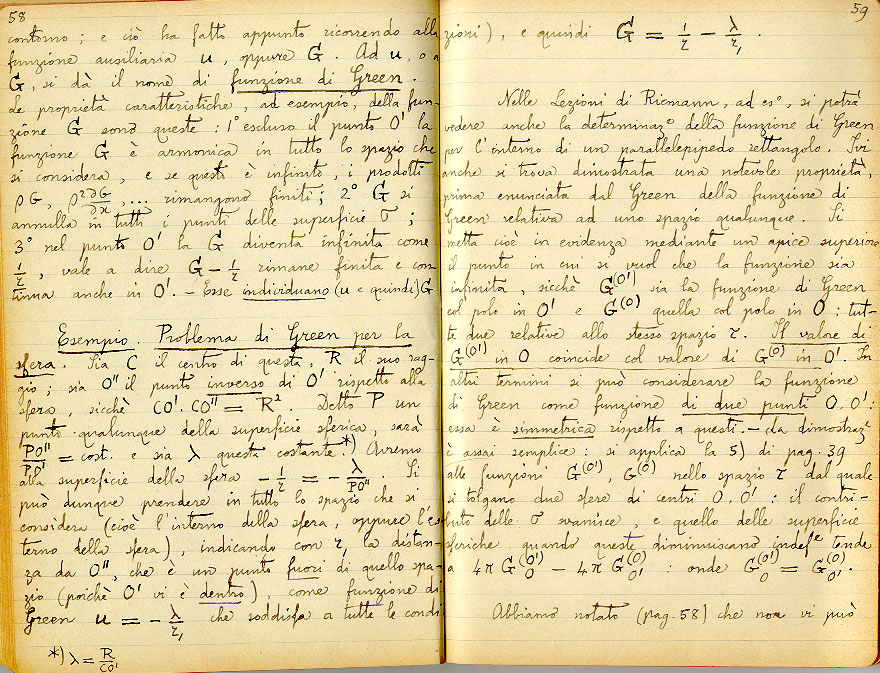 58
contorno ; e ciò ha fatto appunto ricorrendo alla
funzione ausiliaria u, oppure G. Ad u, o a
G, si dà il nome di funzione di Green.
Le proprietà caratteristiche, ad esempio, della fun-
zione G sono queste : 1° escluso il punto O' la
funzione G è armonica in tutto lo spazio che
si considera, e se questi è infinito, i prodotti
ρG, ρ² ∂G/∂x, ... rimangono finiti ; 2° G si
annulla in tutti i punti delle superficie σ ;
3° nel punto O' la G diventa infinita come
1/r, vale a dire G - 1/r rimane finita e con-
tinua anche in O'. - Esse individuano (u e quindi) G
Esempio. Problema di Green per la
sfera. Sia C il centro di questa, R il suo rag-
gio ; sia O'' il punto inverso di O' rispetto alla
sfera, sicchè CO'. CO'' = R² Detto P un
punto qualunque della superficie sferica, sarà
PO''/PO' = cost. e sia λ questa costante.*) Avremo
alla superficie della sfera - 1/r = - λ/PO''. Si
può dunque prendere in tutto lo spazio che si
considera (cioè l'interno della sfera, oppure l'es
terno della sfera), indicando con r₁ la distan-
za da O'', che è un punto fuori di quello spa-
zio (poichè O' vi è dentro), come funzione di
Green u = - λ/r₁ che soddisfa a tutte le condi
*) λ = R/CO'
59
zioni), e quindi G = 1/r - λ/r₁.
Nelle Lezioni di Riemann, ad es°, si potrà
vedere anche la determinaz^e della funzione di Green
per l'interno di un parallelepipedo rettangolo. Ivi
anche si trova dimostrata una notevole proprietà,
prima enunciata dal Green della funzione di
Green relativa ad uno spazio qualunque. Si
metta cioè in evidenza mediante un apice superiore
il punto in cui si vuol che la funzione sia
infinita, sicchè G^(O') sia la funzione di Green
col polo in O' e G^(O) quella col polo in O : tut-
te due relative allo stesso spazio τ. Il valore di
G^(O') in O coincide col valore di G^(O) in O'. In
altri termini si può considerare la funzione
di Green come funzione di due punti O, O' :
essa è simmetrica rispetto a questi. - La dimostraz^e
è assai semplice : si applica la 5) di pag. 39
alle funzioni G^(O'), G^(O) nello spazio τ dal quale
si tolgano due sfere di centri O, O' : il contri-
buto delle σ svanisce, e quello delle superficie
sferiche quando queste diminuiscano indef^te tende
a 4π G_O^(O') - 4π G_O'^(O) : onde G_O^(O') = G_O'^(O).
Abbiamo notato (pag. 58) che non vi può